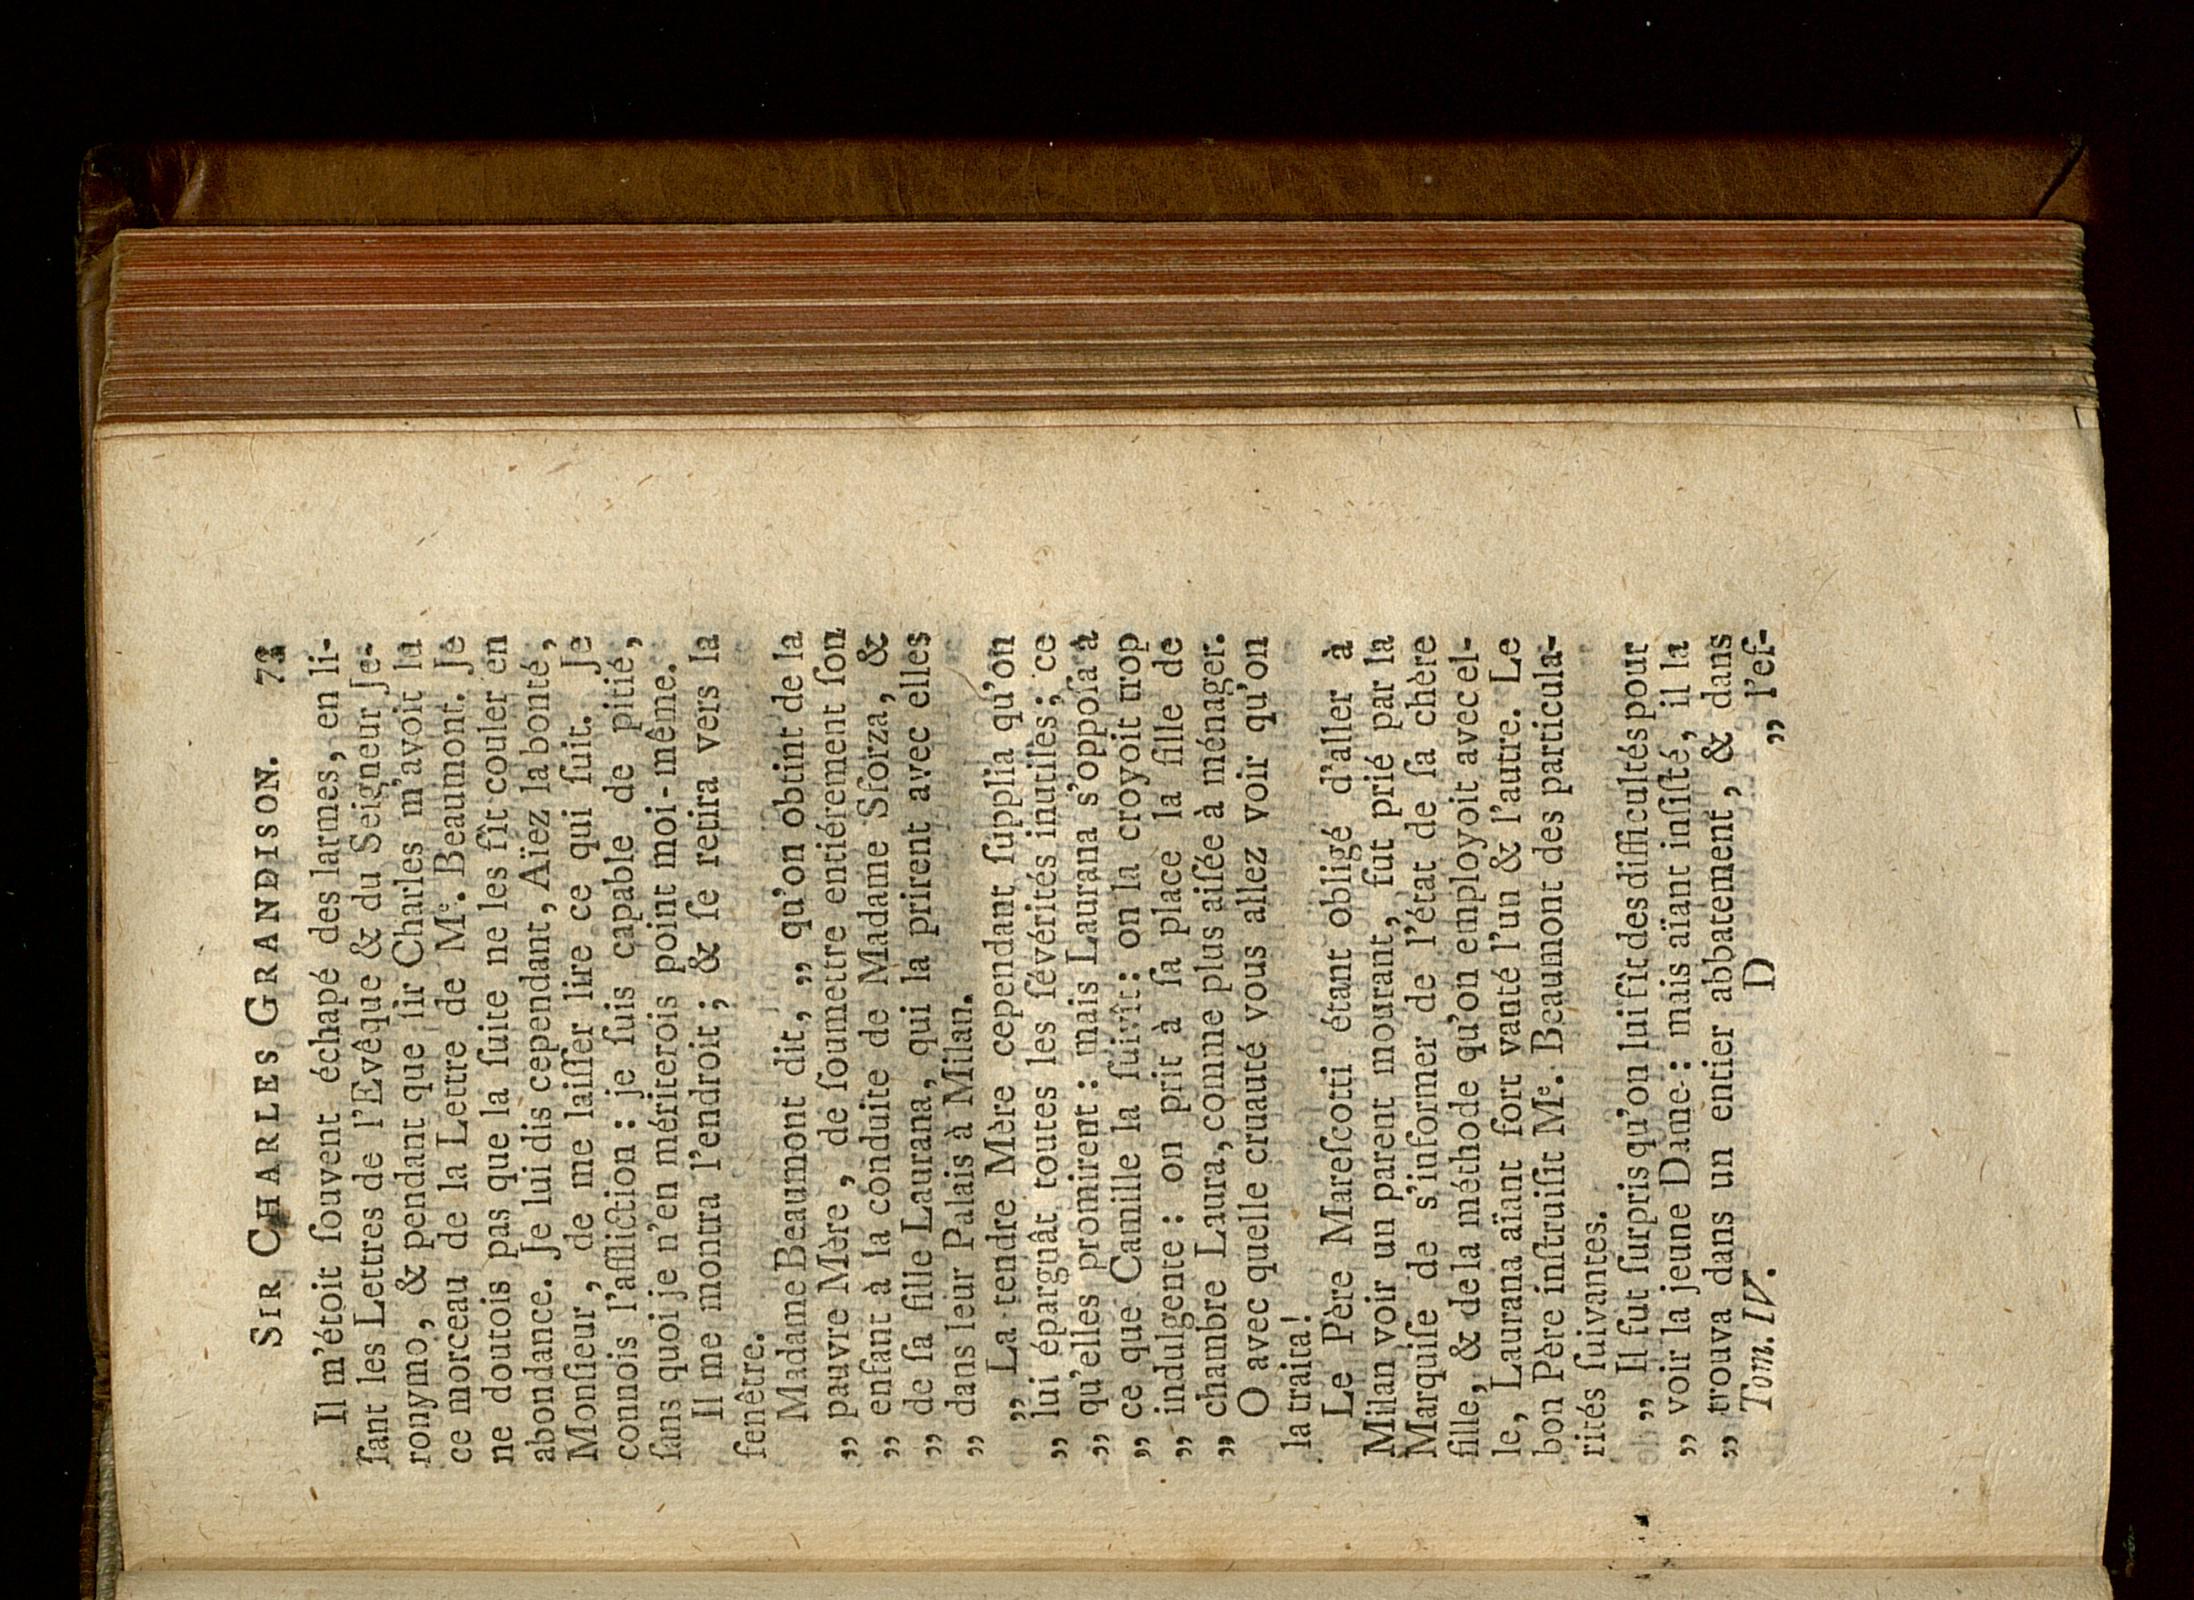 SIR CHARLES GRANDISON. 73
Il m'étoit ſouvent échapé des larmes, en li-
ſant les Lettres de l'Evêque & du Seigneur Je-
ronymo, & pendant que ſir Charles m'avoit lu
ce morceau de la Lettre de Me. Beaumont. Je
ne doutois pas que la ſuite ne les fît couler en
abondance. Je lui dis cependant, Aïez la bonté,
Monſieur, de me laiſſer lire ce qui ſuit. Je
connois l'affliction : je ſuis capable de pitié,
ſans quoi je n'en mériterois point moi-même.
Il me montra l'endroit ; & ſe retira vers la
fenêtre.
Madame Beaumont dit, „ qu'on obtint de la
„ pauvre Mère, de ſoumettre entiérement ſon
„ enfant à la conduite de Madame Sforza, &
„ de ſa fille Laurana, qui la prirent avec elles
„ dans leur Palais à Milan.
„ La tendre Mère cependant ſupplia qu'on
„ lui épargnât toutes les ſévérités inutiles ; ce
„ qu'elles promirent : mais Laurana s'oppoſa à
„ ce que Camille la ſuivît : on la croyoit trop
„ indulgente : on prit à ſa place la fille de
„ chambre Laura, comme plus aiſée à ménager.
O avec quelle cruauté vous allez voir qu'on
la traita!
Le Père Mareſcotti étant obligé d'aller à
Milan voir un parent mourant, fut prié par la
Marquiſe de s'informer de l'état de ſa chère
fille, & de la méthode qu'on employoit avec el-
le, Laurana aïant fort vanté l'un & l'autre. Le
bon Père inſtruiſit Me. Beaumont des particula-
rités ſuivantes.
„ Il fut ſurpris qu'on lui fît des difficultés pour
„ voir la jeune Dame : mais aïant inſiſté, il la
„ trouva dans un entier abbatement, & dans
Tom. IV. D „ l'eſ-